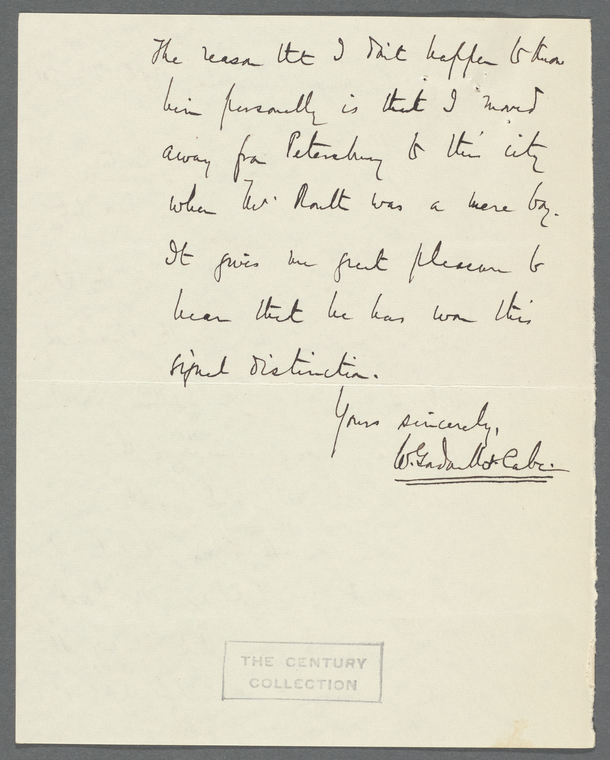 The reason tht I don't happen to know
him personally is that I moved
away from Petersburg to this city
when Mr. Roult was a mere boy.
It gives me great pleasure to
hear that he has won this
signal distinction.
Yours sincerely,
W. Gordon McCabe.
THE CENTURY
COLLECTION